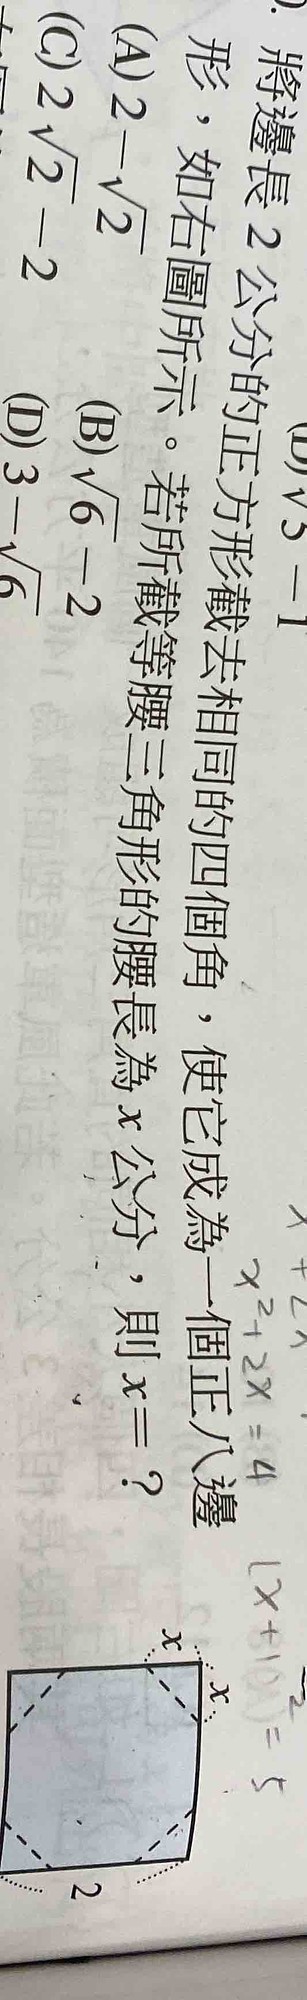 (D)√5－1
將邊長 2 公分的正方形截去相同的四個角，使它成為一個正八邊
形，如右圖所示。若所截等腰三角形的腰長為 x 公分，則 x＝？
(A) 2－√2
(B) √6－2
(C) 2√2－2
(D) 3－√6
x²+2x=4
x
x
2